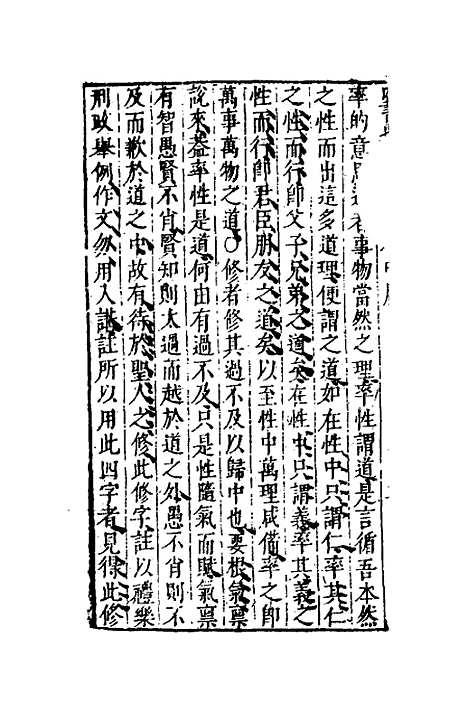 率的意思道者事物當然之理率性謂道是言循吾本然
之性而出這多道理便謂之道如在性中只謂仁率其仁
之性而行卽父子兄弟之道矣在性中只謂義率其義之
性而行卽君臣朋友之道矣以至性中萬理咸備率之卽
萬事萬物之道〇修者修其過不及以歸中也要根氣禀
說來葢率性是道何由有過不及只是性隨氣而賦氣禀
有智愚賢不肖賢知則太過而越於道之外愚不肖則不
及而歉於道之中故有待於聖人之修此修字註以禮樂
刑政舉例作文勿用入講註所以用此四字者見得此修